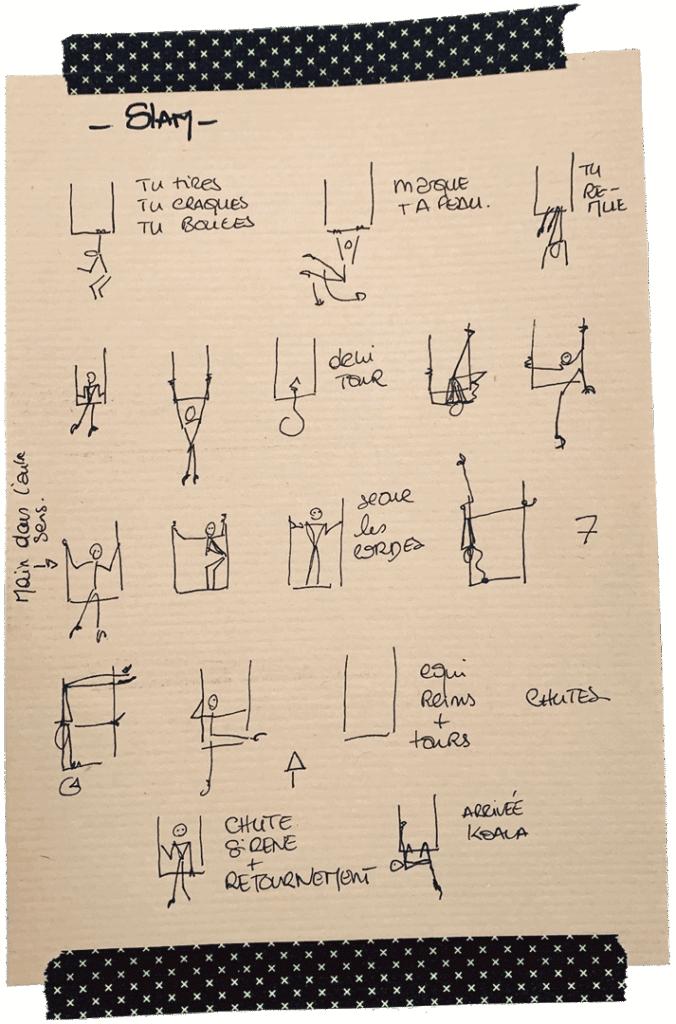 - SLAM -
TU TIRES
TU CRAQUES
TU BOUCLES
MARQUE
TA PEAU.
TU
RE-
MUE
DEMI
TOUR
Main dans l'autre
sens.
secoue
les
CORDES
7
equi
Reins
+
TOURS
CHUTES
CHUTE
SIRENE
+
RETOURNEMENT
ARRIVÉE
KOALA